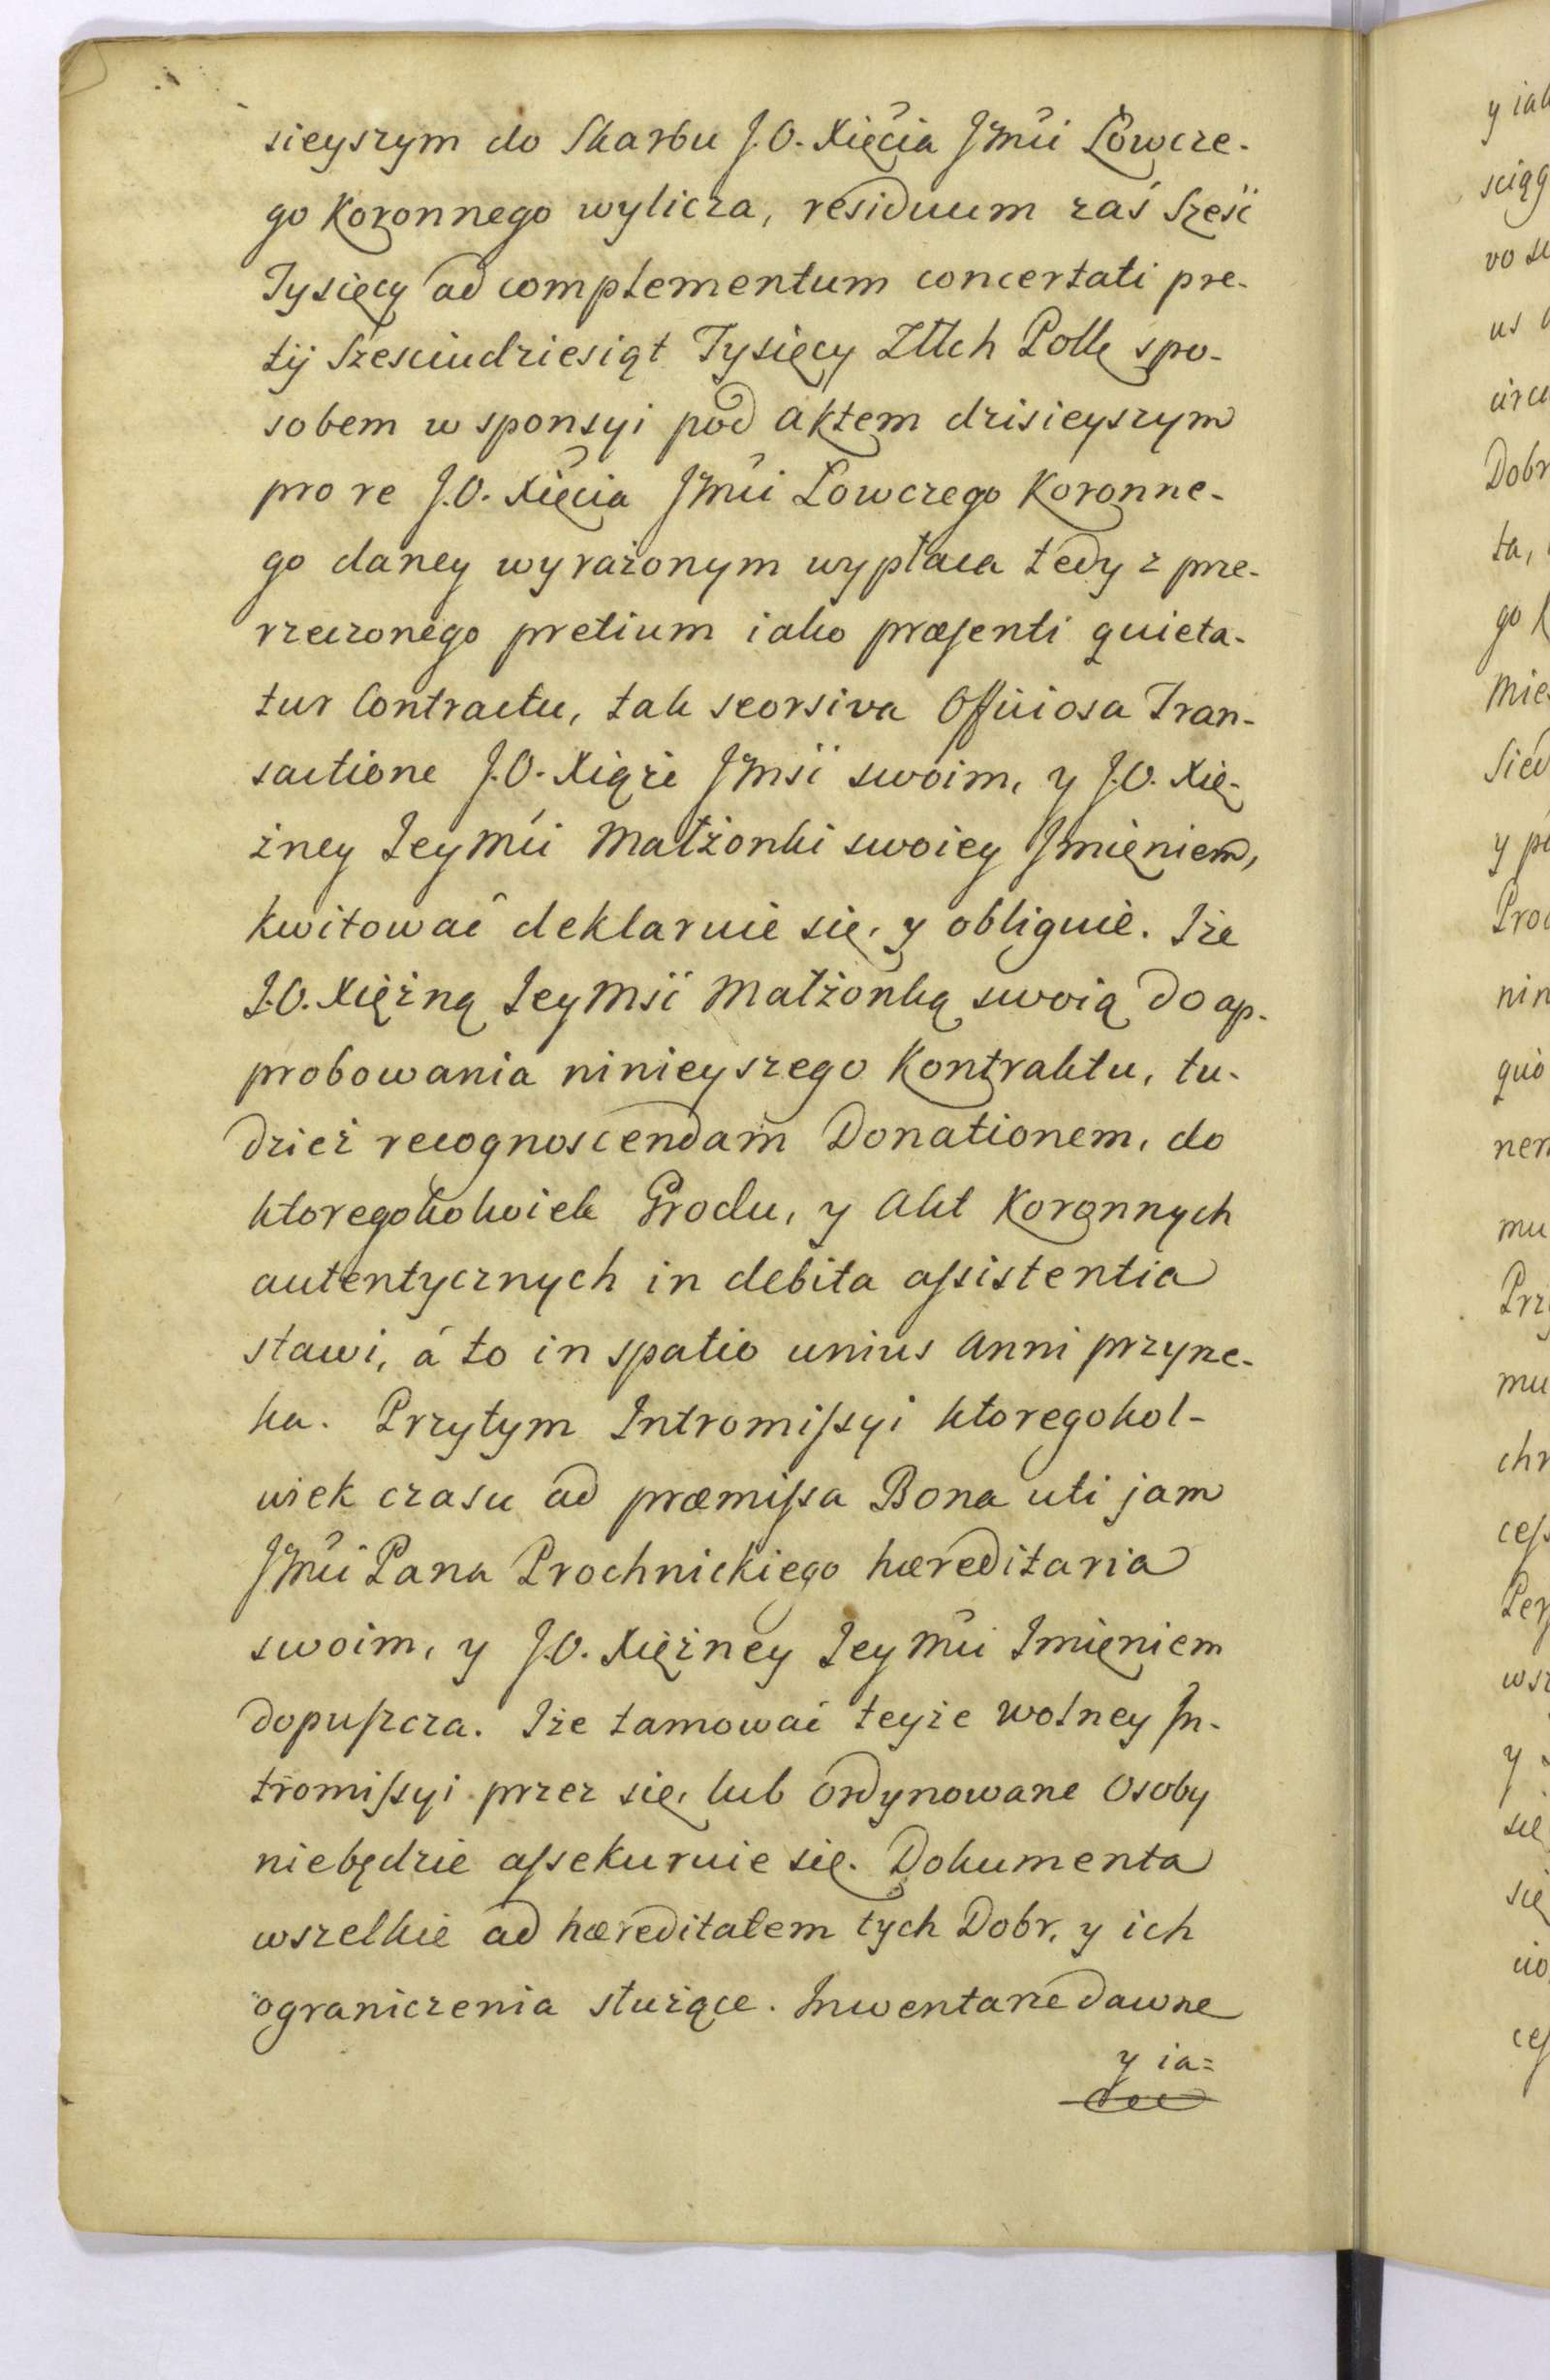 sieyszym do Skarbu J.O. Xięcia Jmći Łowcze-
go Koronnego wylicza, residuum zaś Sześć
Tysięcy ad complementum concertati pre-
tij Szesciudziesiąt Tysięcy Złłch Polł spo-
sobem w sponsyi pod aktem dzisieyszym
pro re J.O. Xięcia Jmći Łowczego Koronne-
go daney wyrażonym wypłaca tedy z prze-
rzeczonego pretium iako præsenti quieta-
tur Contractu, tak seorsiva Officiosa Tran-
sactione J.O. Xiąże Jmść swoim, y J.O. Xię-
żney Jeymći Małżonki swoiey Jmięniem,
kwitować deklaruie się, y obliguie. Iże
J.O. Xiężną Jeymść Małżonką swoią do ap-
probowania ninieyszego Kontraktu, tu-
dzież recognoscendam Donationem, do
ktoregokolwiek Grodu, y Akt Koronnych
autentycznych in debita assistentia
stawi, á to in spatio unius Anni przyrze-
ka. Przytym Intromissyi ktoregokol-
wiek czasu ad præmissa Bona uti jam
Jmći Pana Prochnickiego hæreditaria
swoim, y J.O. Xiężney Jeymći Imięniem
dopuszcza. Iże tamować teyże wolney In-
tromissyi przez się, lub ordynowane Osoby
niebędzie assekuruie się. Dokumenta
wszelkie ad hæreditatem tych Dobr, y ich
ograniczenia służące. Inwentarze dawne
y ia=